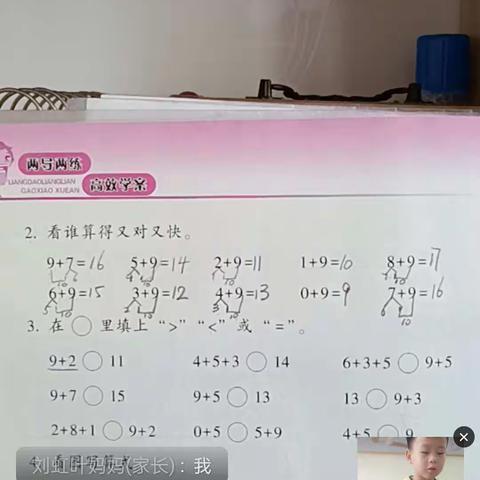 两导两练
LIANGDAOLIANGLIAN
GAOXIAO XUEAN
高效学案
2. 看谁算得又对又快。
9+7=16 5+9=14 2+9=11 1+9=10 8+9=17
6+9=15 3+9=12 4+9=13 0+9=9 7+9=16
3. 在 ○ 里填上 “>” “<” 或 “=”。
9+2 ○ 11 4+5+3 ○ 14 6+3+5 ○ 9+5
9+7 ○ 15 9+5 ○ 13 13 ○ 9+3
2+8+1 ○ 9+2 0+5 ○ 5+9 4+5 ○ 9
4. 看图写算式
刘虹叶妈妈(家长)：我